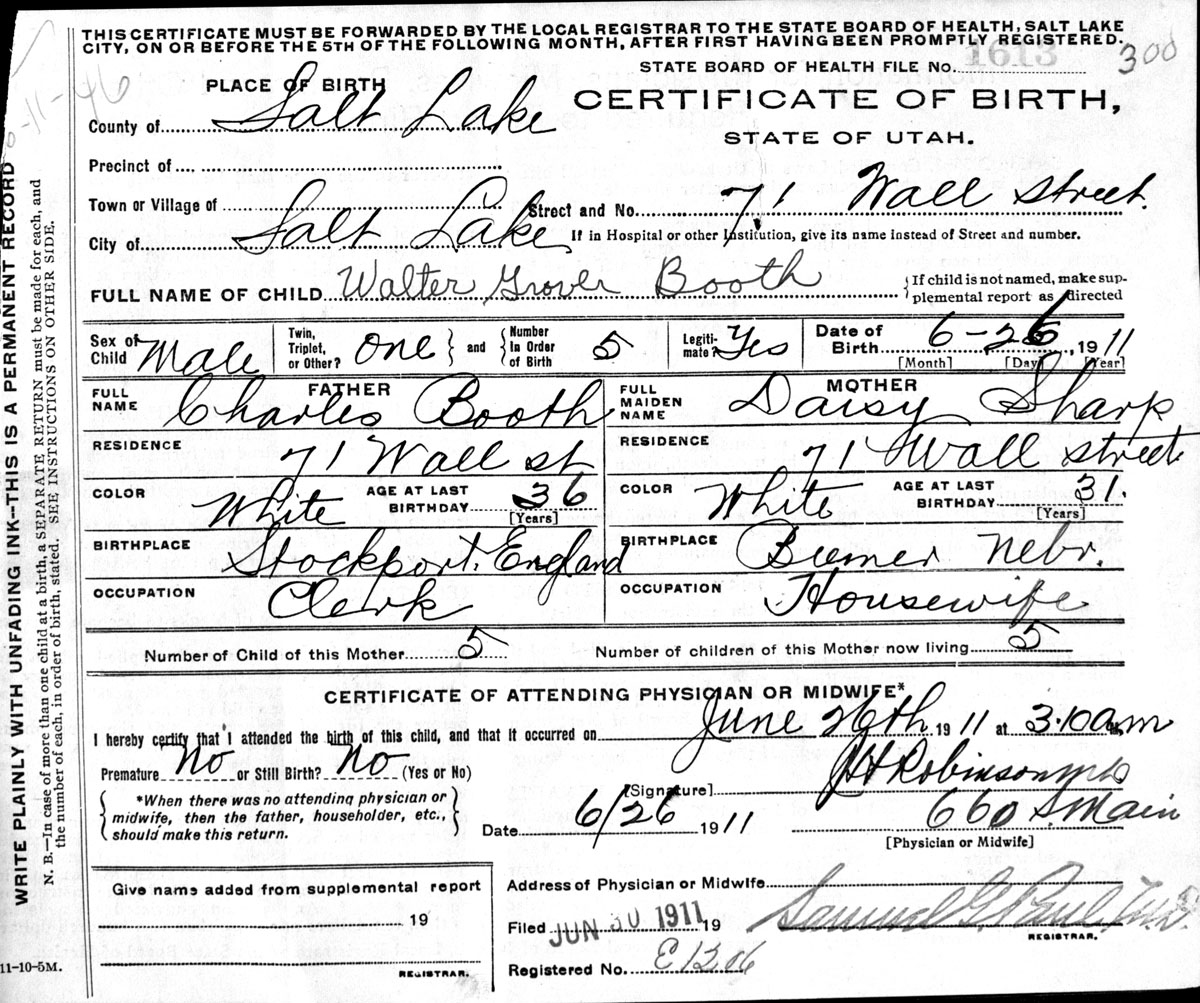 THIS CERTIFICATE MUST BE FORWARDED BY THE LOCAL REGISTRAR TO THE STATE BOARD OF HEALTH, SALT LAKE
CITY, ON OR BEFORE THE 5TH OF THE FOLLOWING MONTH, AFTER FIRST HAVING BEEN PROMPTLY REGISTERED.
STATE BOARD OF HEALTH FILE No. 1613 300
11-46
PLACE OF BIRTH
CERTIFICATE OF BIRTH,
County of Salt Lake
STATE OF UTAH.
Precinct of
Town or Village of
Street and No. 71 Wall Street.
City of Salt Lake
If in Hospital or other Institution, give its name instead of Street and number.
FULL NAME OF CHILD Walter Grover Booth
If child is not named, make sup-
plemental report as directed
Sex of Child Male
Twin, Triplet, or Other? One and Number In Order of Birth 5
Legiti-mate? Yes
Date of Birth 6-26, 1911
[Month] [Day] [Year]
FATHER
FULL NAME Charles Booth
MOTHER
FULL MAIDEN NAME Daisy Sharp
RESIDENCE 71 Wall st
RESIDENCE 71 Wall street
COLOR White AGE AT LAST BIRTHDAY 36 [Years]
COLOR White AGE AT LAST BIRTHDAY 31. [Years]
BIRTHPLACE Stockport. England
BIRTHPLACE Beemer Nebr.
OCCUPATION Clerk
OCCUPATION Housewife
Number of Child of this Mother 5
Number of children of this Mother now living 5
CERTIFICATE OF ATTENDING PHYSICIAN OR MIDWIFE*
I hereby certify that I attended the birth of this child, and that it occurred on June 26th 1911 at 3.10am
Premature No or Still Birth? No (Yes or No)
*When there was no attending physician or
midwife, then the father, householder, etc.,
should make this return.
[Signature] JH Robinson MD
Date 6/26 1911
660 S. Main
[Physician or Midwife]
Give name added from supplemental report
19
REGISTRAR.
Address of Physician or Midwife
Filed JUN 30 1911 19 Samuel G. Paul, M.D.
REGISTRAR.
Registered No. E1306
11-10-5M.
WRITE PLAINLY WITH UNFADING INK--THIS IS A PERMANENT RECORD
N. B.—In case of more than one child at a birth, a SEPARATE RETURN must be made for each, and
the number of each, in order of birth, stated. SEE INSTRUCTIONS ON OTHER SIDE.